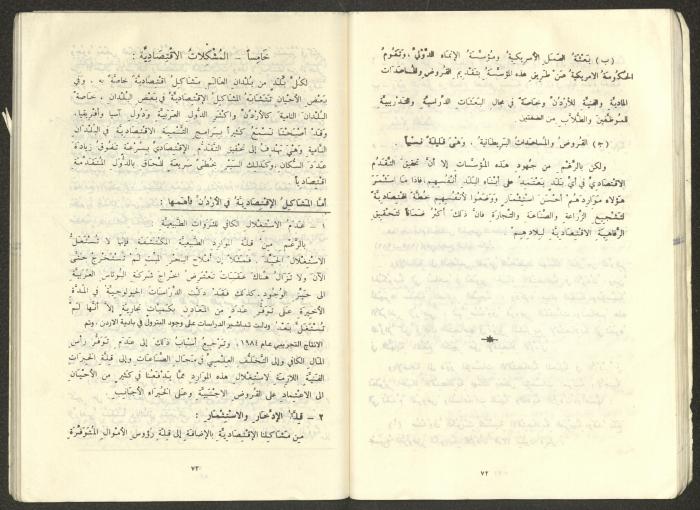 (ب) بَعْثَةُ العَمَل الأمريكية ومُؤسَّسَةُ الإنماء الدَّوْليّ، وَتَقُومُ
الحكومةُ الامريكية عَنْ طَريق هذه المؤسَّسَةِ بتَقْديم القُروض والمُسَاعَدات
الماديةِ والفنيةِ للأردُنّ وخَاصَةً في مجال البَعَثَاتِ الدِّراسية والتَّدْريبيةِ
للمُوظَّفين والطُّلابِ من الضفتين.
(ج) القروضُ والمُسَاعَدَاتُ البريطانيةُ، وَهْيَ قَليلةٌ نسبياً.
ولكن بالرَّغْم من جُهودِ هذه المؤسَّسَاتِ إلا أنَّ تحقيق التَّقَدُّم
الاقتصاديِّ في أيِّ بَلَدٍ يَعْتَمِدُ على أبْنَاءِ البَلَدِ أَنْفُسِهِم، فاذا ما اسْتَثْمَرَ
هؤلاء مَوَارِدَهُمْ أحْسَنَ اسْتِثْمَارٍ وَوَضَعُوا لأنْفُسِهِمْ خُطَّةً اقتصاديَّةً
لتَشْجيعِ الزِّراعة والصِّنَاعة والتِّجَارة فانَّ ذلكَ أَكْثَرُ ضَمَاناً لتَحْقيقِ
الرَّفَاهِيَةِ الاقتصاديَّةِ لِبِلادِهِمْ.
٧٢
خَامِساً – المُشْكِلاتُ الاقْتِصَادِيَّةُ :
لكُلِّ بَلَدٍ من بُلْدان العَالَمِ مَشَاكِلُ اقْتِصَادِيَّةٌ خاصَّةٌ به . وفي
بَعْضِ الأَحْيَانِ تَتَشَابَهُ المَشَاكِلُ الاقْتِصَادِيَّةُ في بَعْضِ البُلْدَانِ ، خَاصَةً
البُلْدَانَ الناميَةَ كالأرْدُنِّ واكثَرِ الدُّوَلِ العَرَبيَّةِ ودُوَلِ آسيا وأفريقيا.
وقَدْ أَصْبَحْنَا نَسْمَعُ كَثيراً ببَرَامِجِ التَّنْمِيَةِ الاقتِصَادِيَّةِ في البُلْدَانِ
النَّاميةِ وَهْيَ تَهْدِفُ إلى تَحْقيقِ التَّقدُّمِ الاقْتِصَادِيِّ بسُرْعَةٍ تَفُوقُ زيَادَةَ
عَدَدِ السُّكَّانِ، وكَذلِكَ السَّيْرُ بخُطىً سَريعَةٍ للَّحَاقِ بالدُّوَلِ المُتَقَدِّمَةِ
اقتِصَادِياً.
أمَّا المَشَاكِلُ الاقْتِصَادِيَّةُ في الأُرْدُنِّ فأَهَمُّهَا :
١ – عَدَمُ الاسْتِغْلالِ الكَافي للثَّرَوَاتِ الطَّبيعيَّةِ
بالرَّغْمِ مِنْ قِلَّةِ المَوَارِدِ الطَّبيعِيَّةِ المُكْتَشَفَةِ فإنَّهَا لَمْ تُسْتَغَلَّ
الاسْتِغْلالَ الجَيِّدَ. فَمَثَلاً إنَّ أمْلاحَ البَحْرِ المَيِّتِ لَمْ تُسْتَخْرَجْ حَتَّى
الآنَ ولا تَزَالُ هُنَاكَ عَقَبَاتٌ تَعْتَرِضُ اخراجَ شَرِكَةِ البُوتَاسِ العَرَبيَّةِ
الى حَيِّزِ الوُجُودِ. كذلكَ فَقَدْ دَلَّتِ الدِّرَاسَاتُ الجيُولوجيَّةُ في المُدَّةِ
الأخيرَةِ على تَوَفُّرِ عَدَدٍ مِنَ المَعَادِنِ بكَمِّيَاتٍ تجَاريَّةٍ إلاَّ أنَّهَا لَمْ
تُسْتَغَلَّ بَعْدُ. ودلت تباشير الدراسات على وجود البترول في بادية الاردن، وتم
الانتاج التجريبي عام ١٩٨٤. وتَرْجِعُ أسْبَابُ ذلكَ إلى عَدَمِ تَوَفُّرِ رأْسِ
المَالِ الكَافي وإلى التَّخَلُّفِ العِلْميِّ في مَجَالِ الصِّنَاعَاتِ وإلى قِلَّةِ الخِبْراتِ
الفَنِّيَّةِ اللازِمَةِ لاسْتِغْلالِ هذهِ المَوَارِدِ ممَّا يَدْفَعُنَا في كَثيرٍ مِنَ الأَحْيَانِ
الى الاعْتِمَادِ على القُروضِ الاجْنَبيَّةِ وعلى الخُبَراءِ الأَجَانِبِ.
٢ – قِلَّةُ الإدِّخَارِ والاسْتِثْمَارِ :
مِنْ مَشَاكِلِنَا الاقْتِصَادِيَّةِ بالإضافَةِ إلى قِلَّةِ رؤوسِ الأَمْوَالِ المُتَوَفِّرَةِ
٧٣